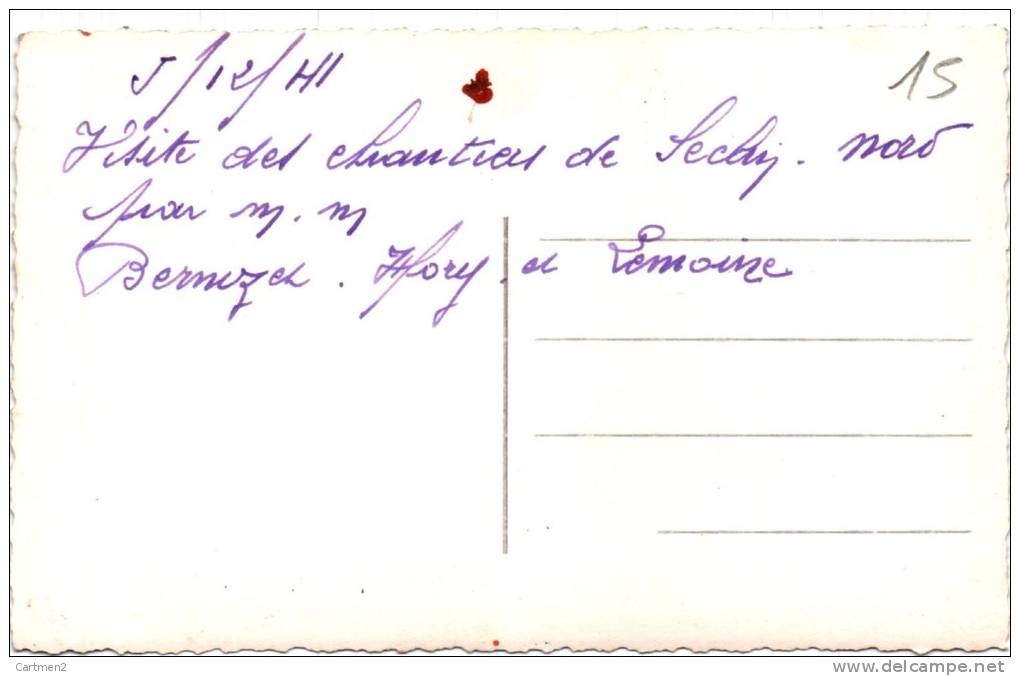 5/12/41
15
Visite des chantiers de Seclin. nord
par m.m
Bernizet. Hory. et Lemoine
Cartmen2
www.delcampe.net